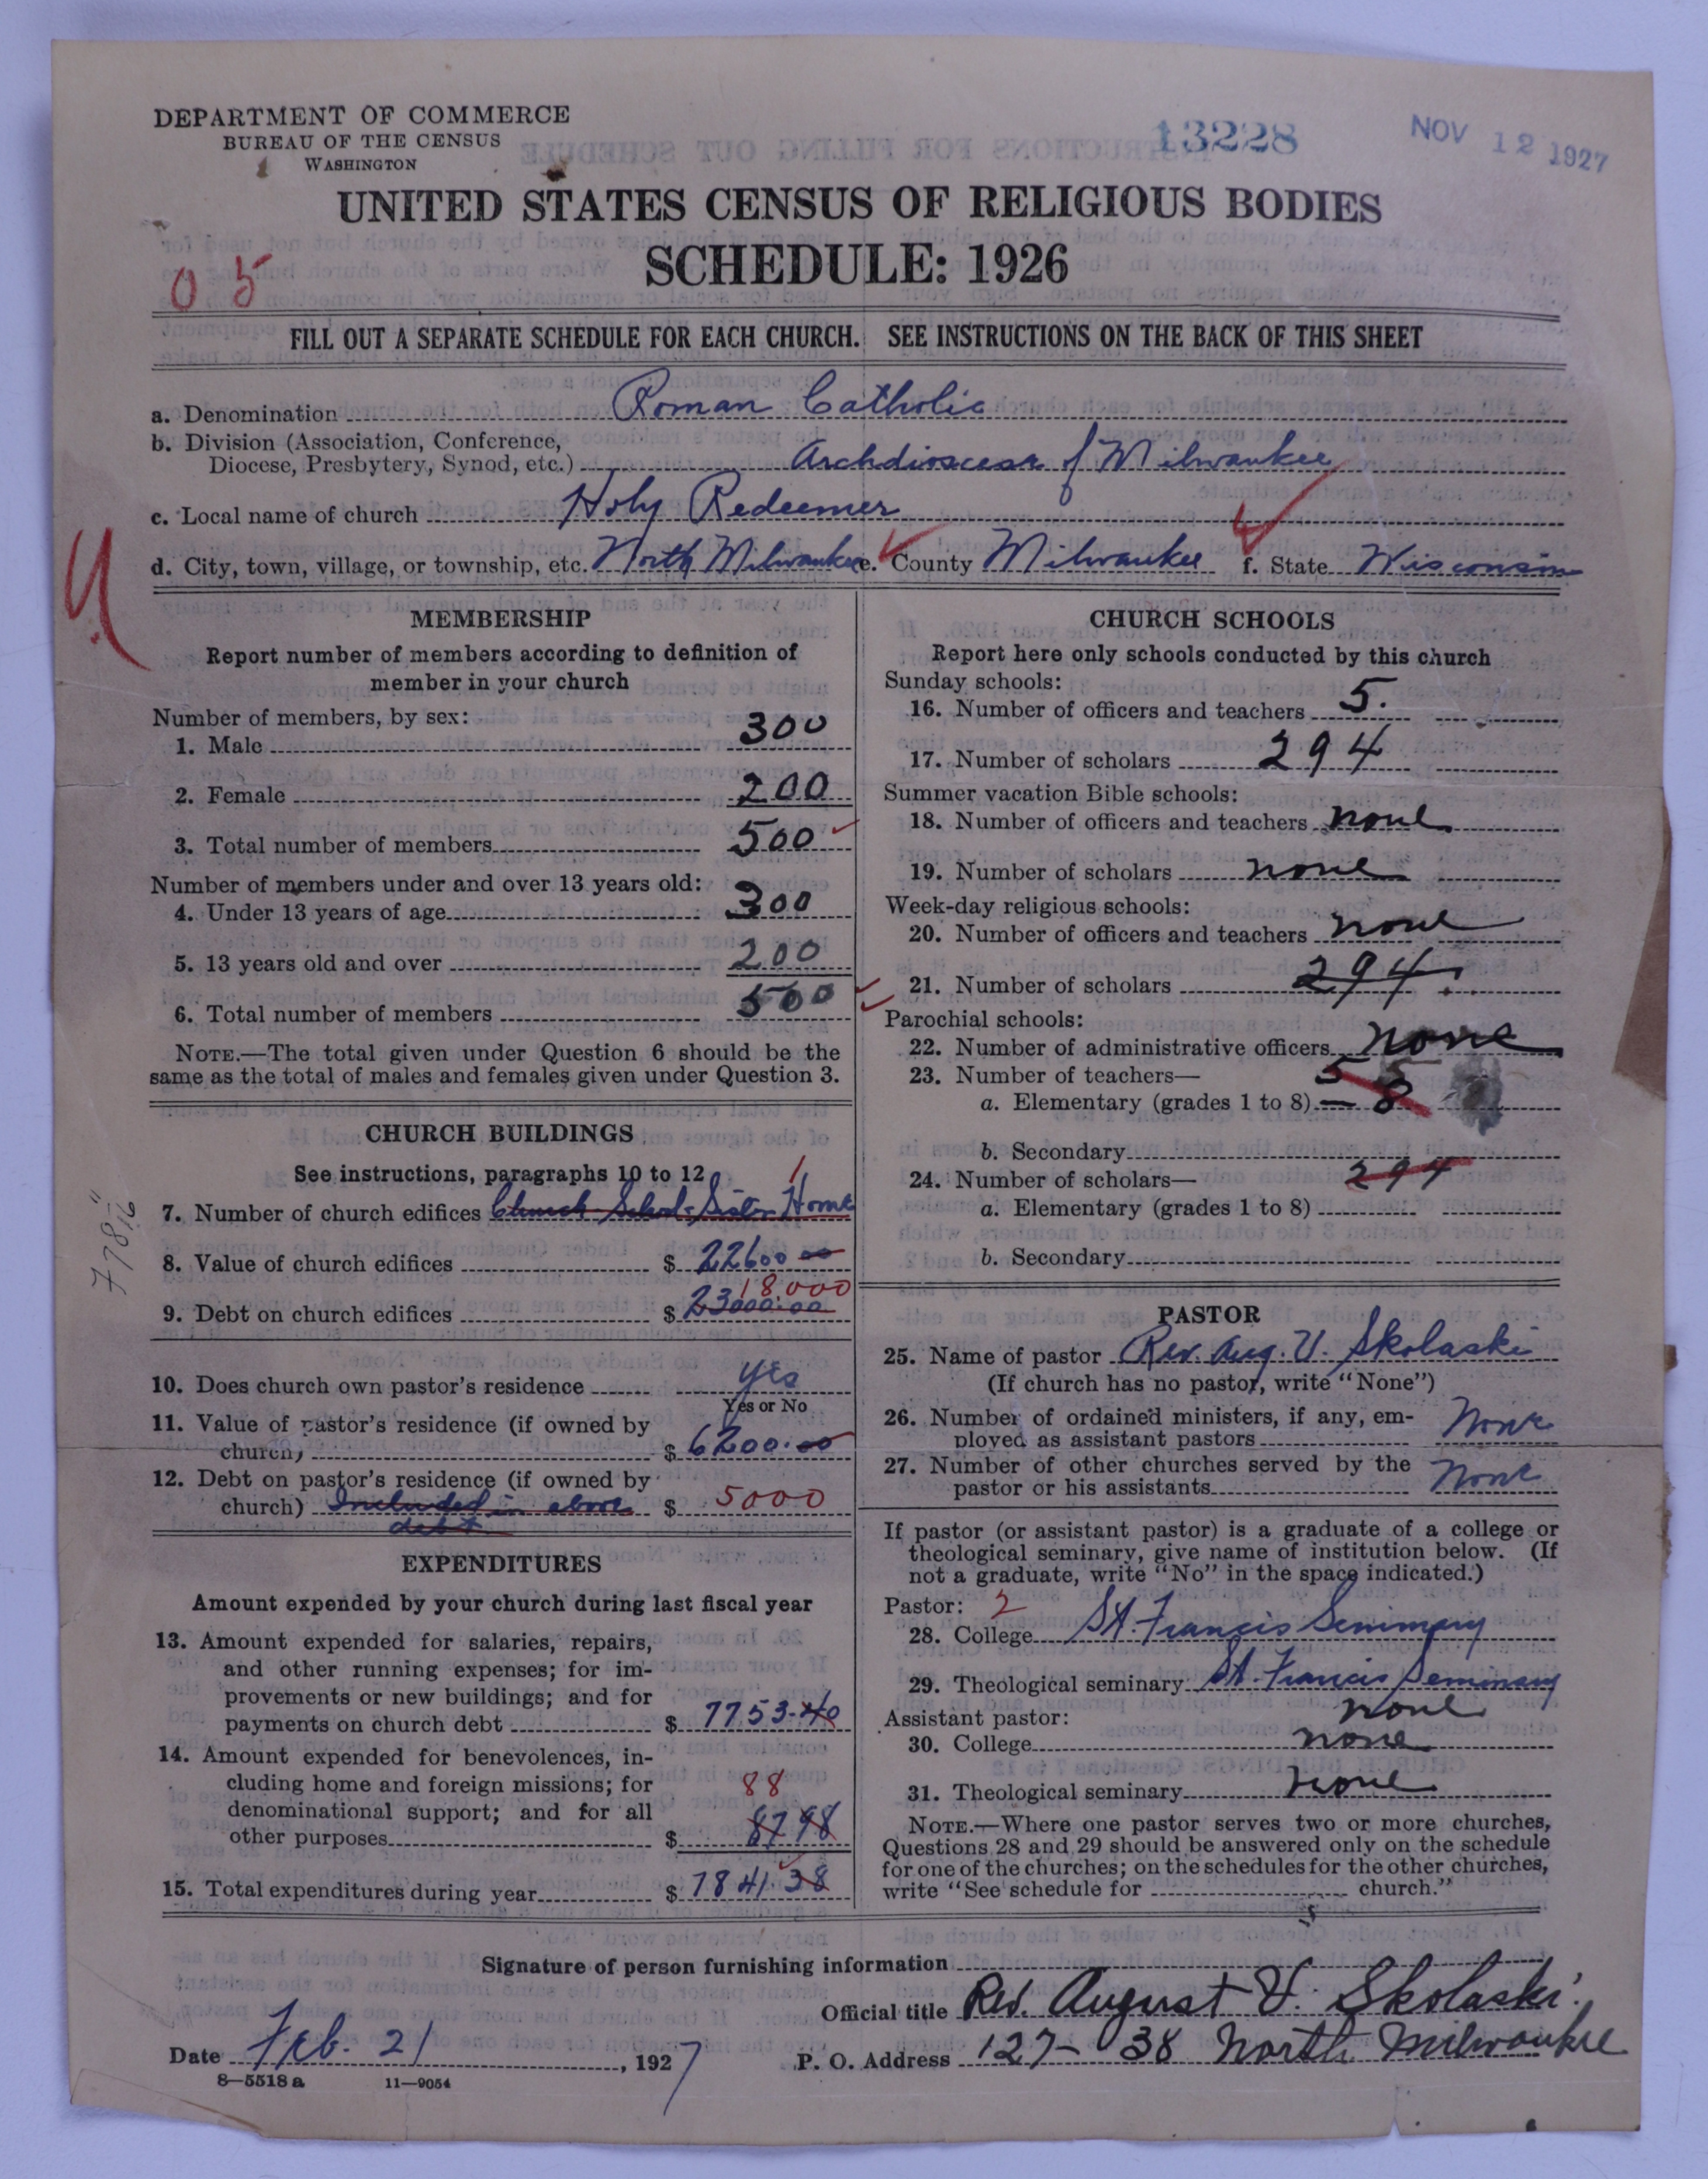 DEPARTMENT OF COMMERCE
BUREAU OF THE CENSUS
WASHINGTON
13228
NOV 12 1927
UNITED STATES CENSUS OF RELIGIOUS BODIES
SCHEDULE: 1926
05
FILL OUT A SEPARATE SCHEDULE FOR EACH CHURCH. SEE INSTRUCTIONS ON THE BACK OF THIS SHEET
a. Denomination Roman Catholic
b. Division (Association, Conference,
Diocese, Presbytery, Synod, etc.) Archdiocese of Milwaukee
c. Local name of church Holy Redeemer
d. City, town, village, or township, etc. North Milwaukee e. County Milwaukee f. State Wisconsin
MEMBERSHIP
Report number of members according to definition of
member in your church
Number of members, by sex:
1. Male 300
2. Female 200
3. Total number of members 500
Number of members under and over 13 years old:
4. Under 13 years of age 300
5. 13 years old and over 200
6. Total number of members 500
NOTE.—The total given under Question 6 should be the
same as the total of males and females given under Question 3.
CHURCH BUILDINGS
See instructions, paragraphs 10 to 12
1
7. Number of church edifices Church School Sister Home
8. Value of church edifices $ 22600 00
18.000
9. Debt on church edifices $ 23000.00
10. Does church own pastor's residence yes
Yes or No
11. Value of pastor's residence (if owned by
church) $ 6200.00
12. Debt on pastor's residence (if owned by
church) Included in above $ 5000
debt
EXPENDITURES
Amount expended by your church during last fiscal year
13. Amount expended for salaries, repairs,
and other running expenses; for im-
provements or new buildings; and for
payments on church debt $ 7753.40
14. Amount expended for benevolences, in-
cluding home and foreign missions; for 88
denominational support; and for all
other purposes $ 87 98
15. Total expenditures during year $ 7841.38
CHURCH SCHOOLS
Report here only schools conducted by this church
Sunday schools:
16. Number of officers and teachers 5.
17. Number of scholars 294
Summer vacation Bible schools:
18. Number of officers and teachers none
19. Number of scholars none
Week-day religious schools:
20. Number of officers and teachers none
21. Number of scholars 294
Parochial schools:
22. Number of administrative officers none
23. Number of teachers— 5
a. Elementary (grades 1 to 8) 8
b. Secondary
24. Number of scholars— 294
a. Elementary (grades 1 to 8)
b. Secondary
PASTOR
25. Name of pastor Rev. Aug. V. Skolaski
(If church has no pastor, write "None")
26. Number of ordained ministers, if any, em-
ployed as assistant pastors None
27. Number of other churches served by the
pastor or his assistants None
If pastor (or assistant pastor) is a graduate of a college or
theological seminary, give name of institution below. (If
not a graduate, write "No" in the space indicated.)
Pastor: 2
28. College St. Francis Seminary
29. Theological seminary St. Francis Seminary
Assistant pastor: none
30. College none
31. Theological seminary none
NOTE.—Where one pastor serves two or more churches,
Questions 28 and 29 should be answered only on the schedule
for one of the churches; on the schedules for the other churches,
write "See schedule for church."
Signature of person furnishing information
Official title Rev. August V. Skolaski
Date Feb. 21, 1927 P. O. Address 127- 38 North Milwaukee
8—5518 a 11—9054